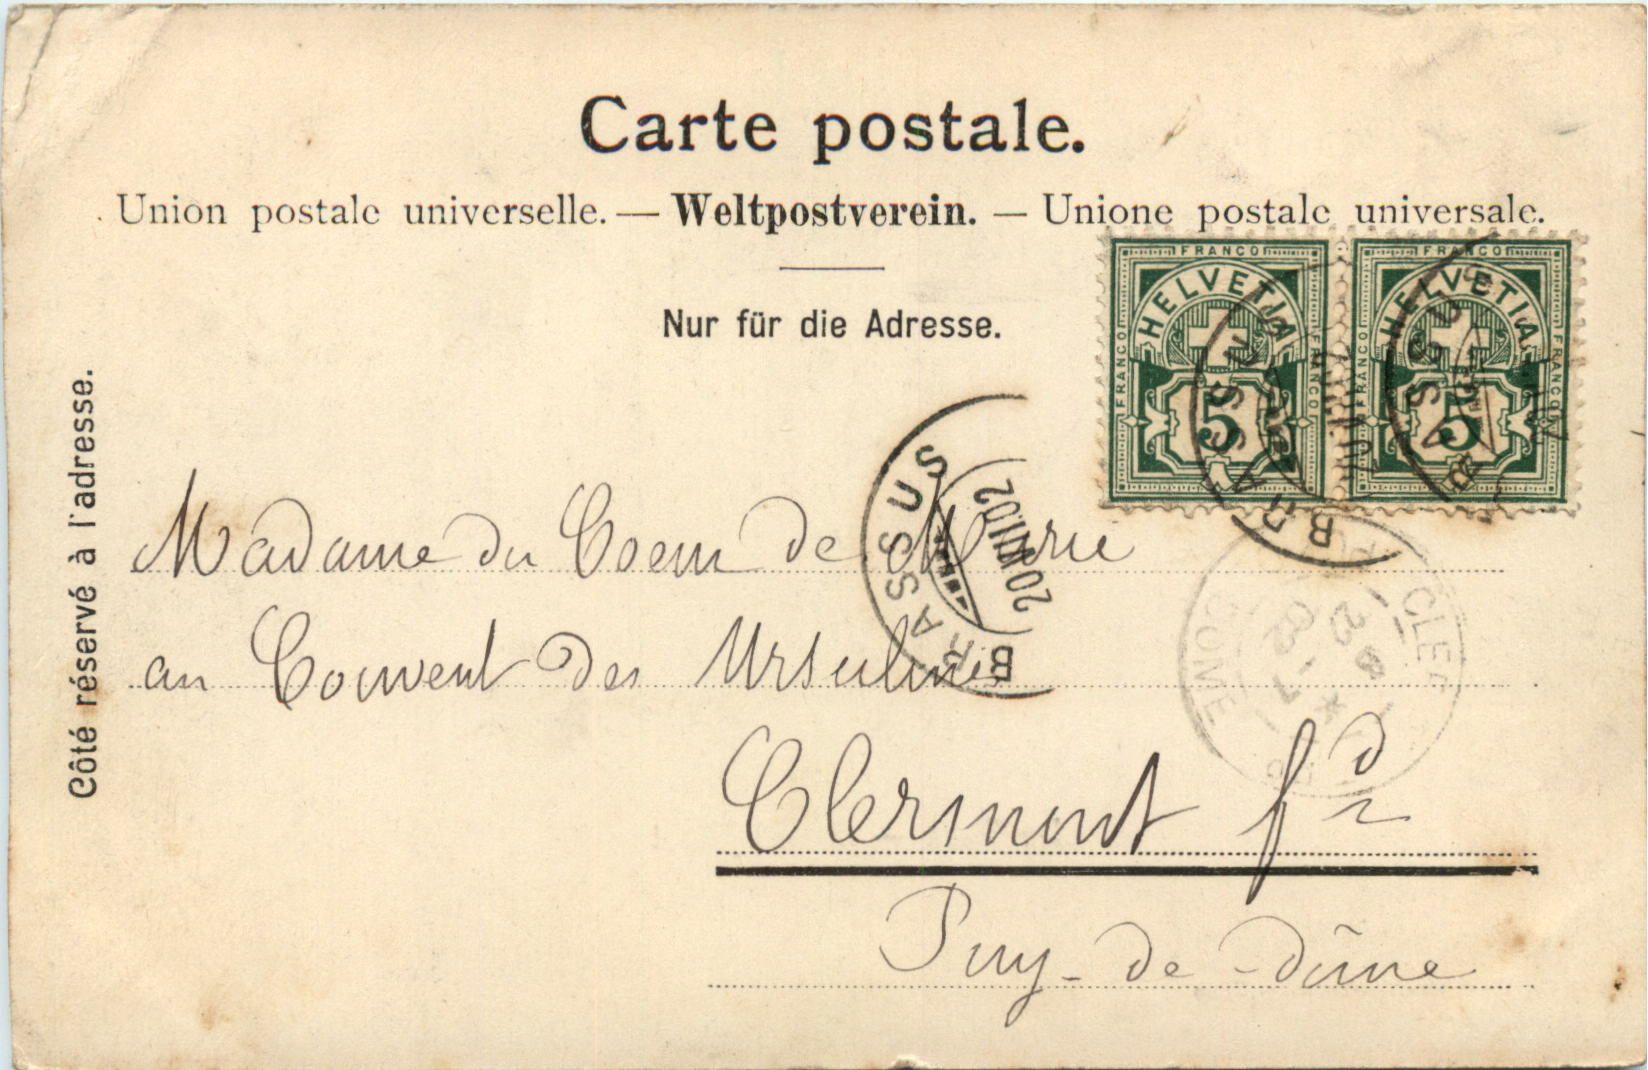 Carte postale.
Union postale universelle. — Weltpostverein. — Unione postale universale.
Nur für die Adresse.
Côté réservé à l'adresse.
FRANCO FRANCO
HELVETIA HELVETIA
FRANCO FRANCO FRANCO FRANCO
5 5
BRASSUS
BRASSUS
BRASSUS
20 XII 02
Madame du Coeur de Marie
au Couvent des Ursulines
Clermont fd
Puy-de-dôme